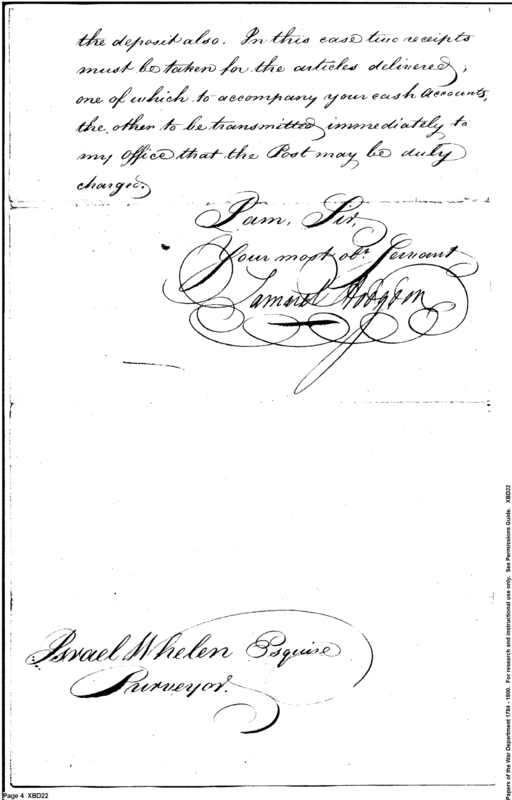 the deposit also. In this case two receipts
must be taken for the articles delivered;
one of which to accompany your cash accounts,
the other to be transmitted immediately to
my Office that the Post may be duly
charged.
I am, Sir,
Your most obt Servant
Samuel Hodgdon
Israel Whelen Esquire
Purveyor.
Page 4 XBD22
Papers of the War Department 1784 - 1800. For research and instructional use only. See Permissions Guide. XBD22